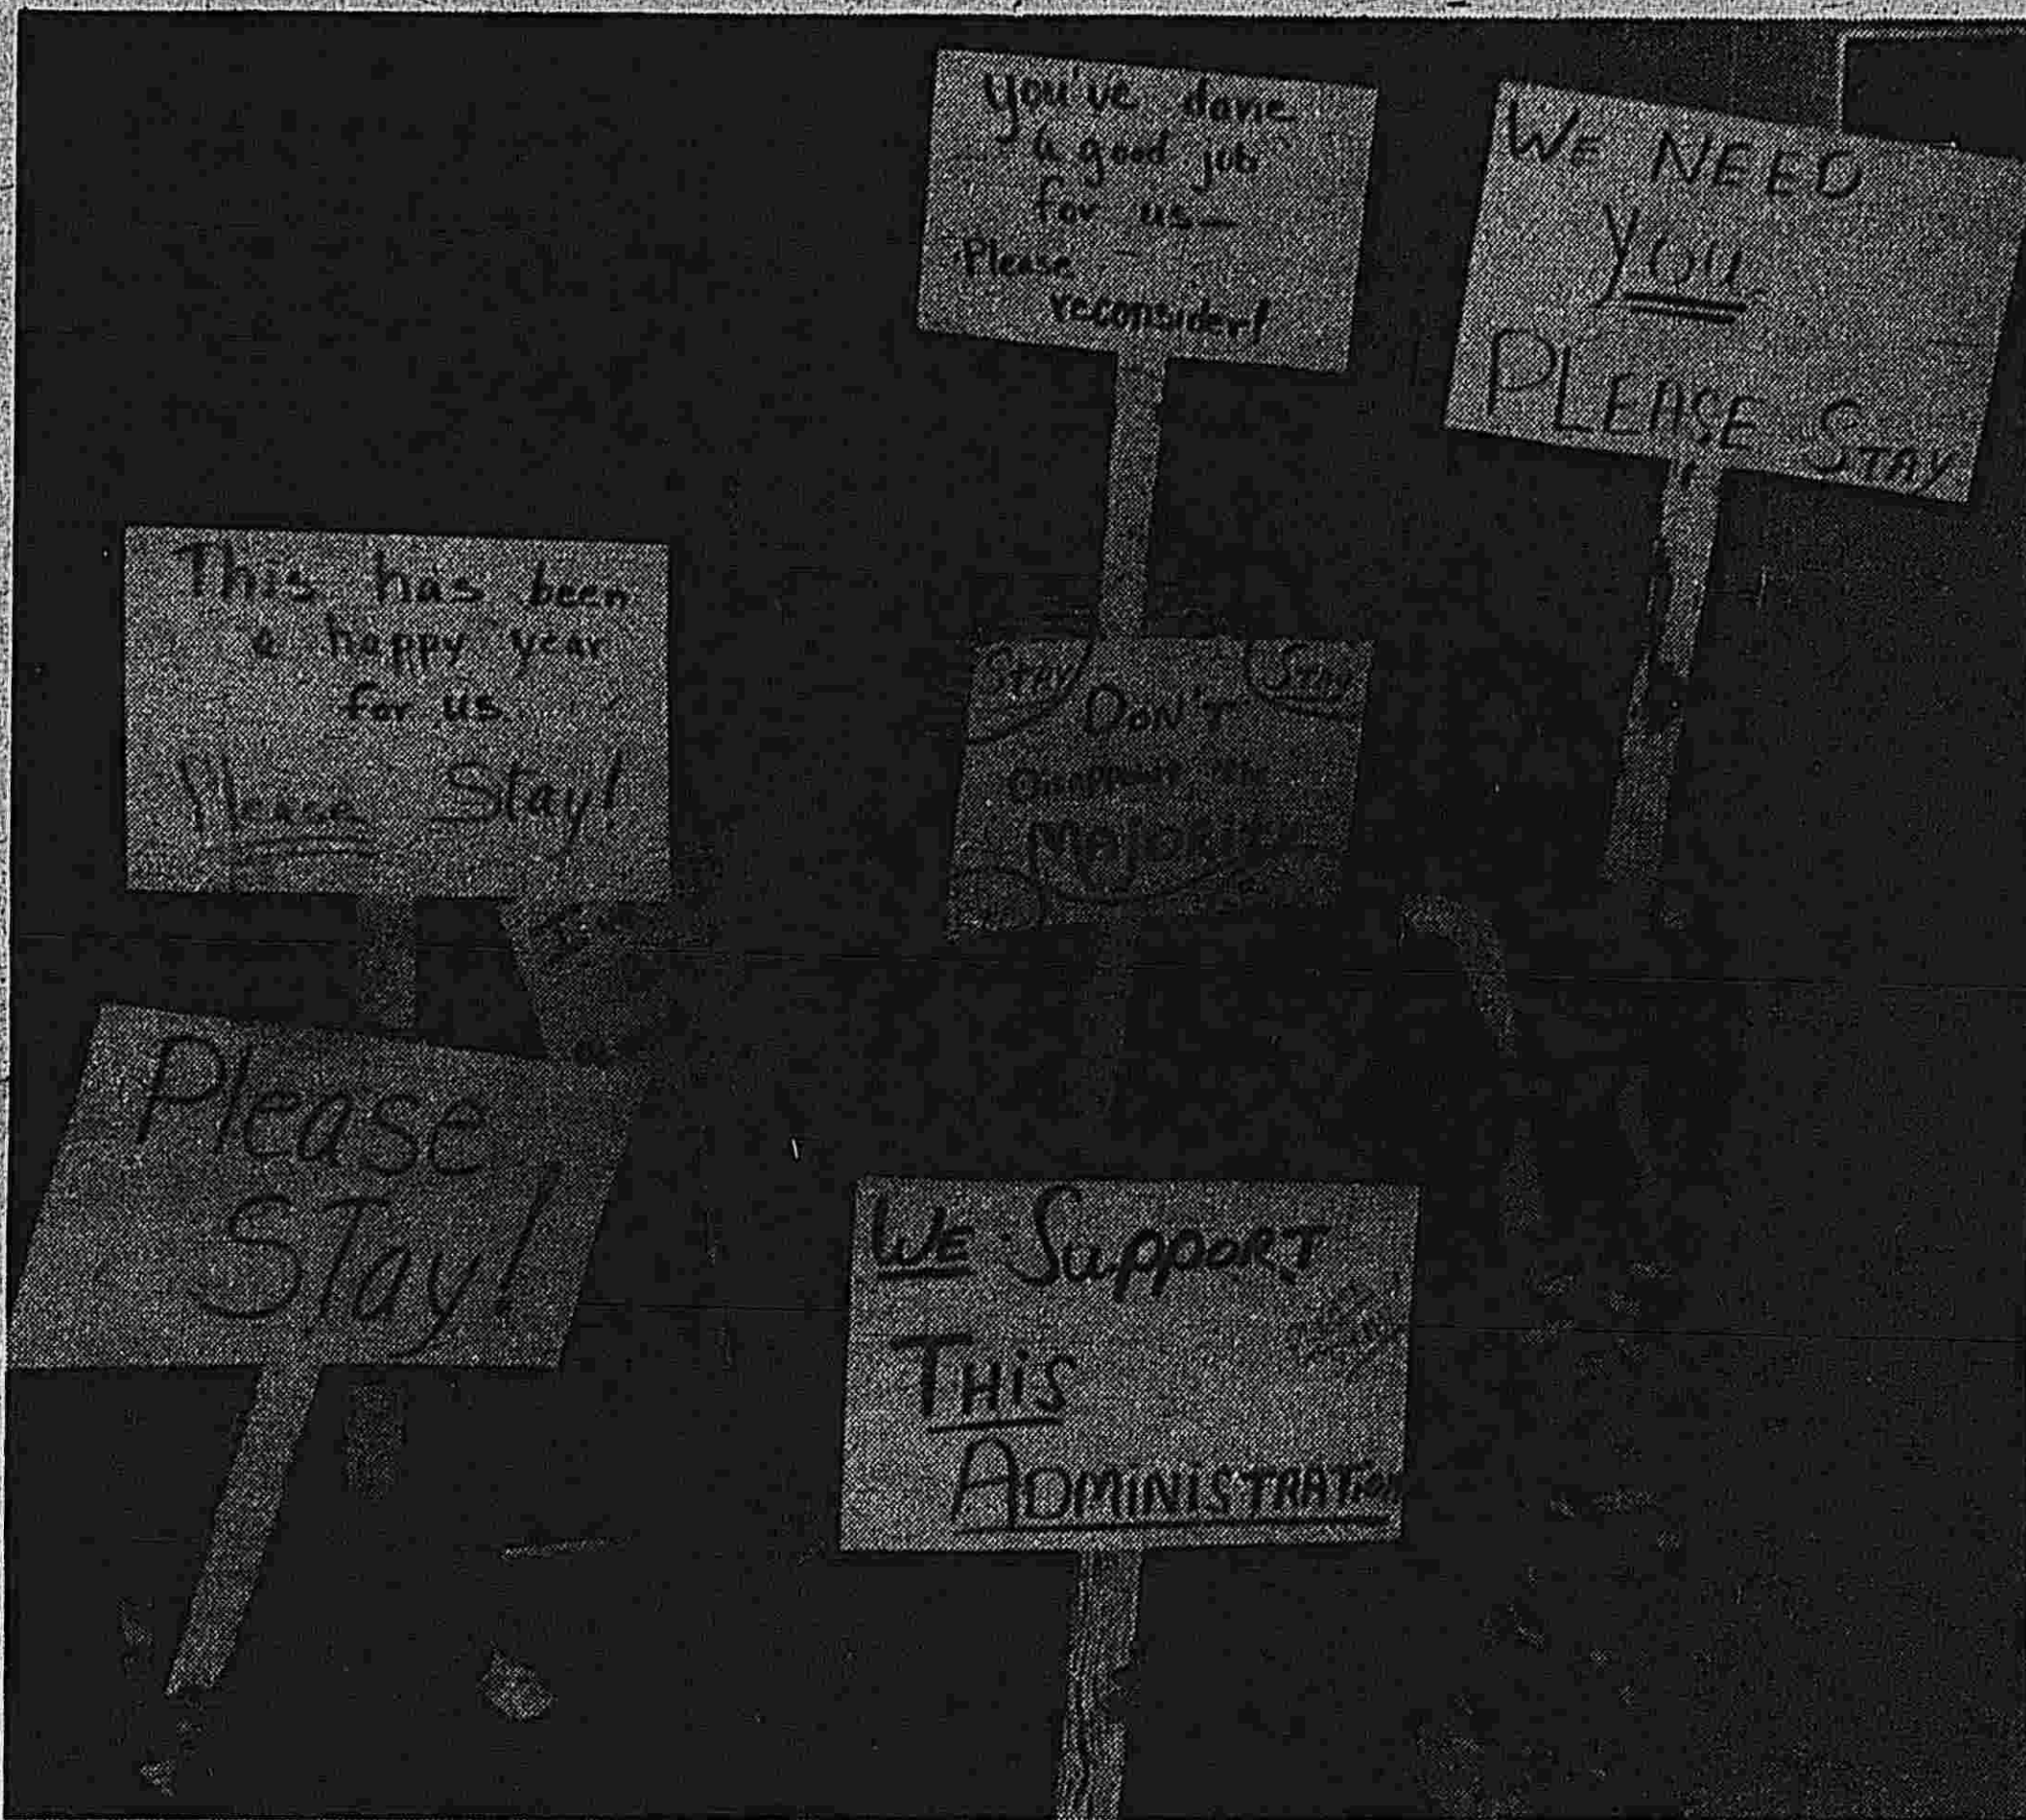 You've done
a good job
for us—
Please
reconsider!
WE NEED
YOU
PLEASE STAY
This has been
a happy year
for us.
Please Stay!
STAY
STAY
DON'T
Disappoint the
MAJORITY
Please
STay!
WE SuppoRT
THiS
ADMiNiSTRATioN